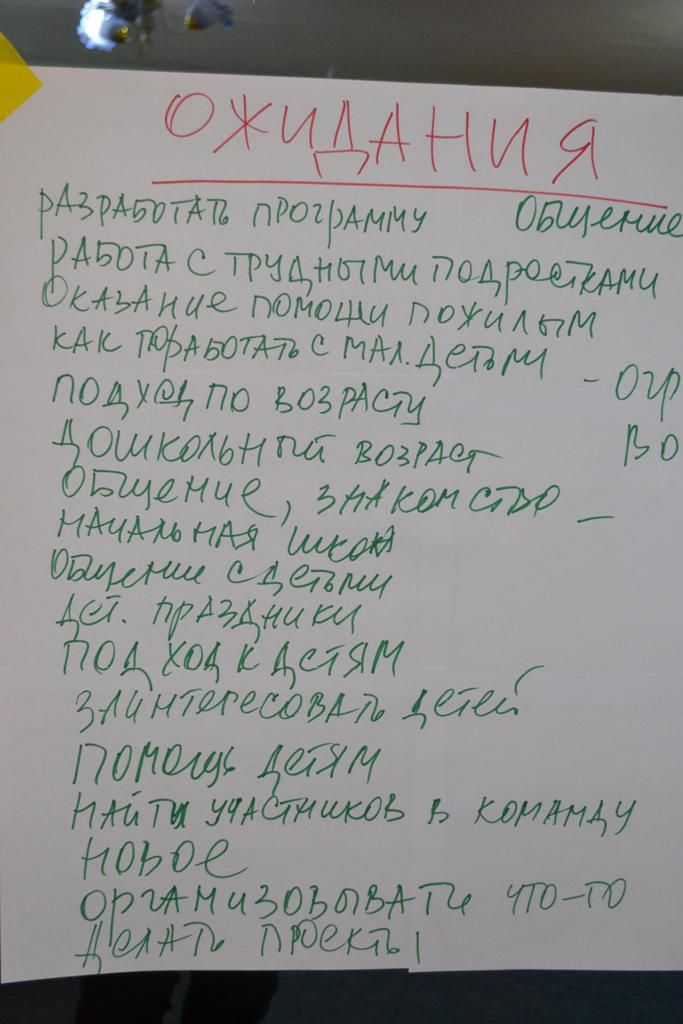 ОЖИДАНИЯ
РАЗРАБОТАТЬ ПРОГРАММУ ОБЩЕНИЕ
РАБОТА С ТРУДНЫМИ ПОДРОСТКАМИ
ОКАЗАНИЕ ПОМОЩИ ПОЖИЛЫМ
КАК ПОРАБОТАТЬ С МАЛ. ДЕТЬМИ - ОГР
ПОДХОД ПО ВОЗРАСТУ
ДОШКОЛЬНЫЙ ВОЗРАСТ ВО
ОБЩЕНИЕ, ЗНАКОМСТВО -
НАЧАЛЬНАЯ ШКОЛА
ОБЩЕНИЕ С ДЕТЬМИ
ДЕТ. ПРАЗДНИКИ
ПОДХОД К ДЕТЯМ
ЗАИНТЕРЕСОВАТЬ ДЕТЕЙ
ПОМОЩЬ ДЕТЯМ
НАЙТИ УЧАСТНИКОВ В КОМАНДУ
НОВОЕ
ОРГАНИЗОВЫВАТЬ ЧТО-ТО
ДЕЛАТЬ ПРОЕКТЫ